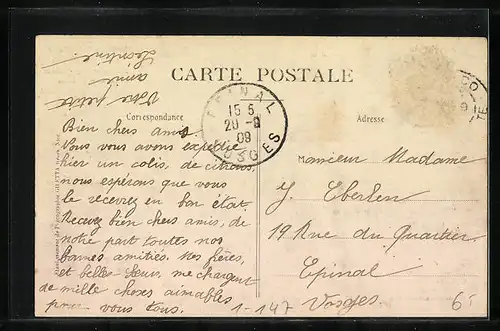 CARTE POSTALE
Correspondance
Adresse
EPINAL
15 5
20 -9
09
VOSGES
Bien chers amis
Vous vous avons expedié
hier un colis, de citrons,
nous espérons que vous
le recevrez en bon état
Recevez bien chers amis, de
notre part toutes nos
bonnes amitiés. Mes frères,
et belle Soeur, me chargent
de mille choses aimables
pour vous tous.
Votre petite
amie
Monsieur Madame
J. Eberlen
19 Rue du Quartier
Epinal
Vosges
1-147
6-